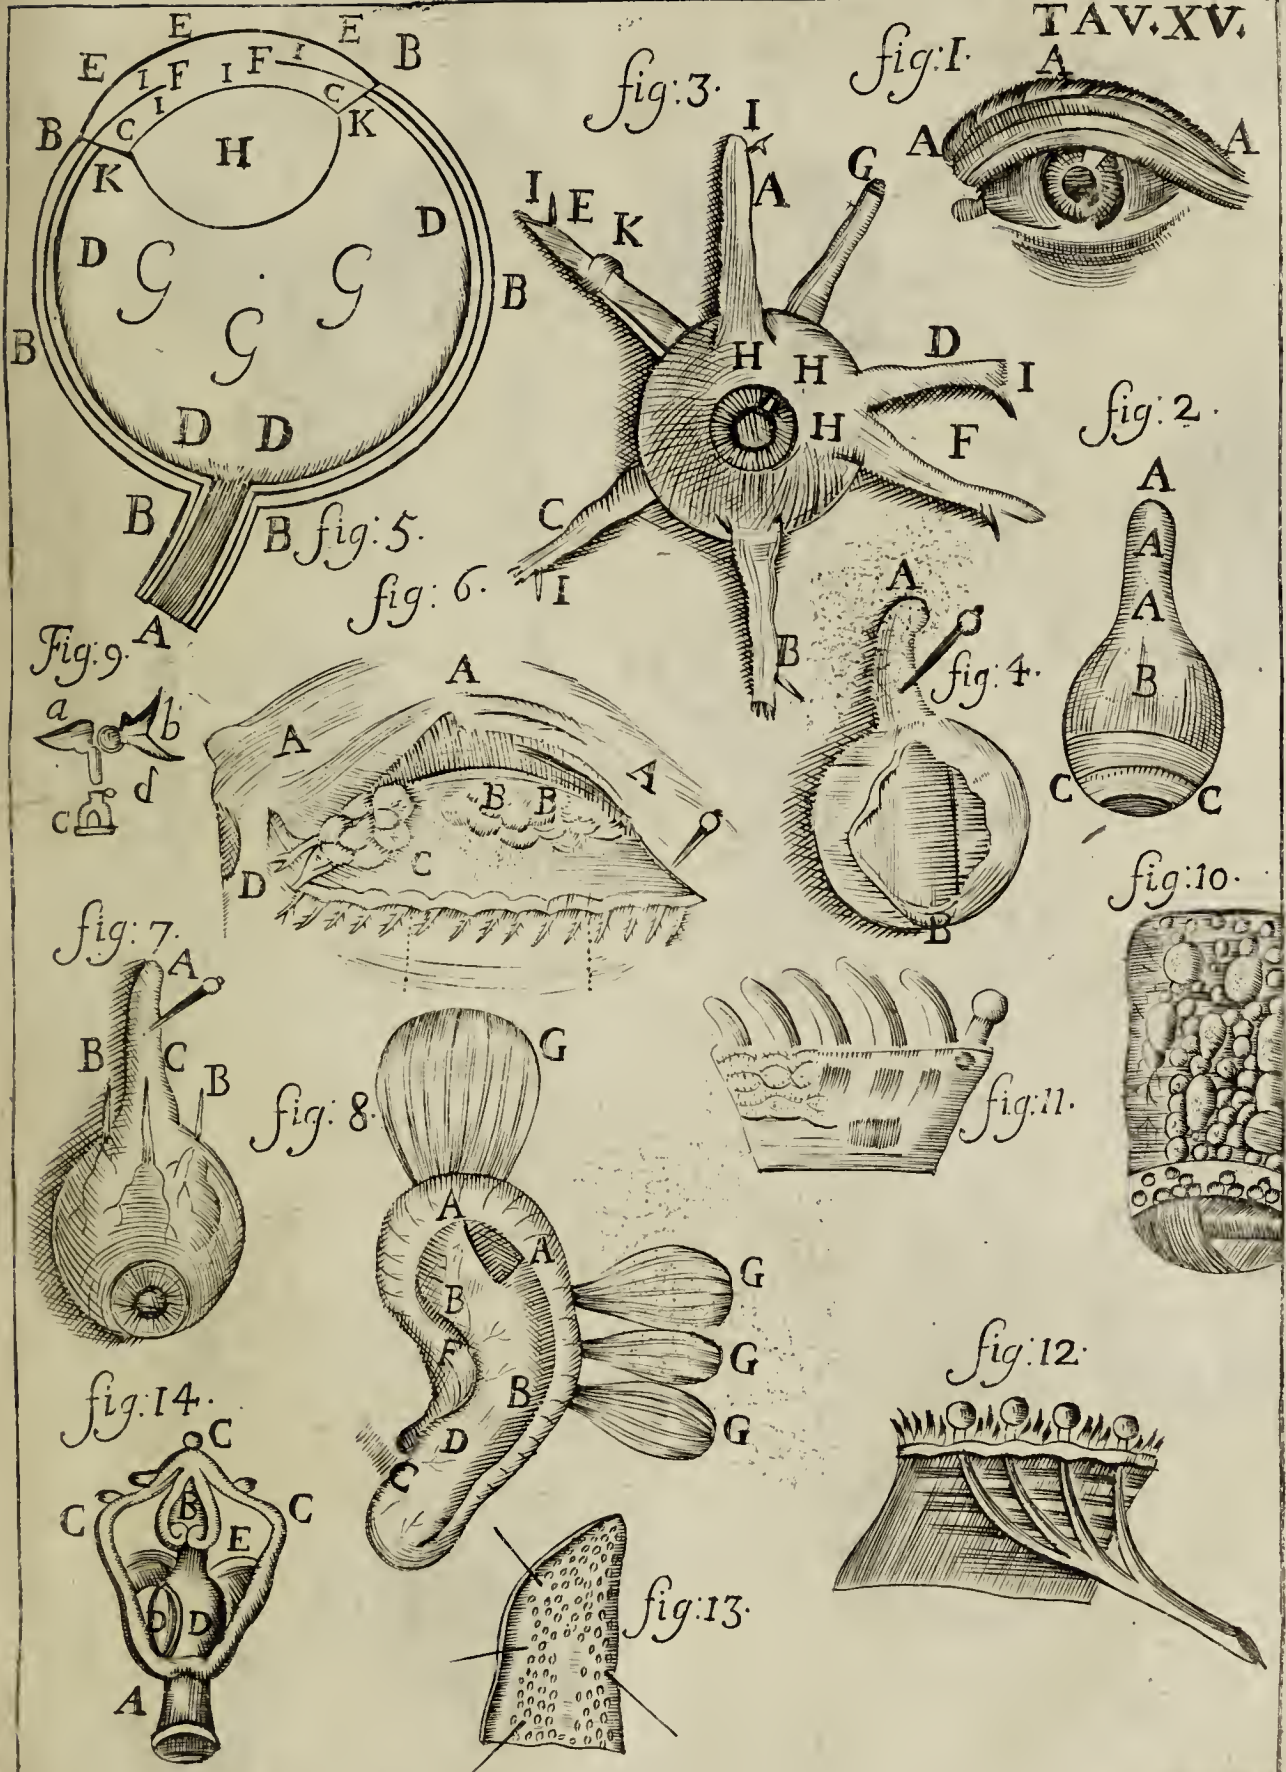 TAV.XV.
fig:1.
A
A
A
E
E
E
I
F
I
F
I
B
B
C
I
C
K
K
H
D
D
G
G
G
B
B
D
D
B
B
fig:5.
A
fig:3.
I
A
G
I
E
K
H
H
H
D
I
F
C
I
B
fig:2.
A
A
A
B
C
C
fig:4.
A
B
fig:6.
A
A
A
B
B
C
D
Fig:9.
a
b
c
d
fig:7.
A
B
C
B
fig:8.
G
A
A
B
F
B
D
C
G
G
G
fig:10.
fig:11.
fig:12.
fig:13.
fig:14.
C
C
C
B
E
D
D
A